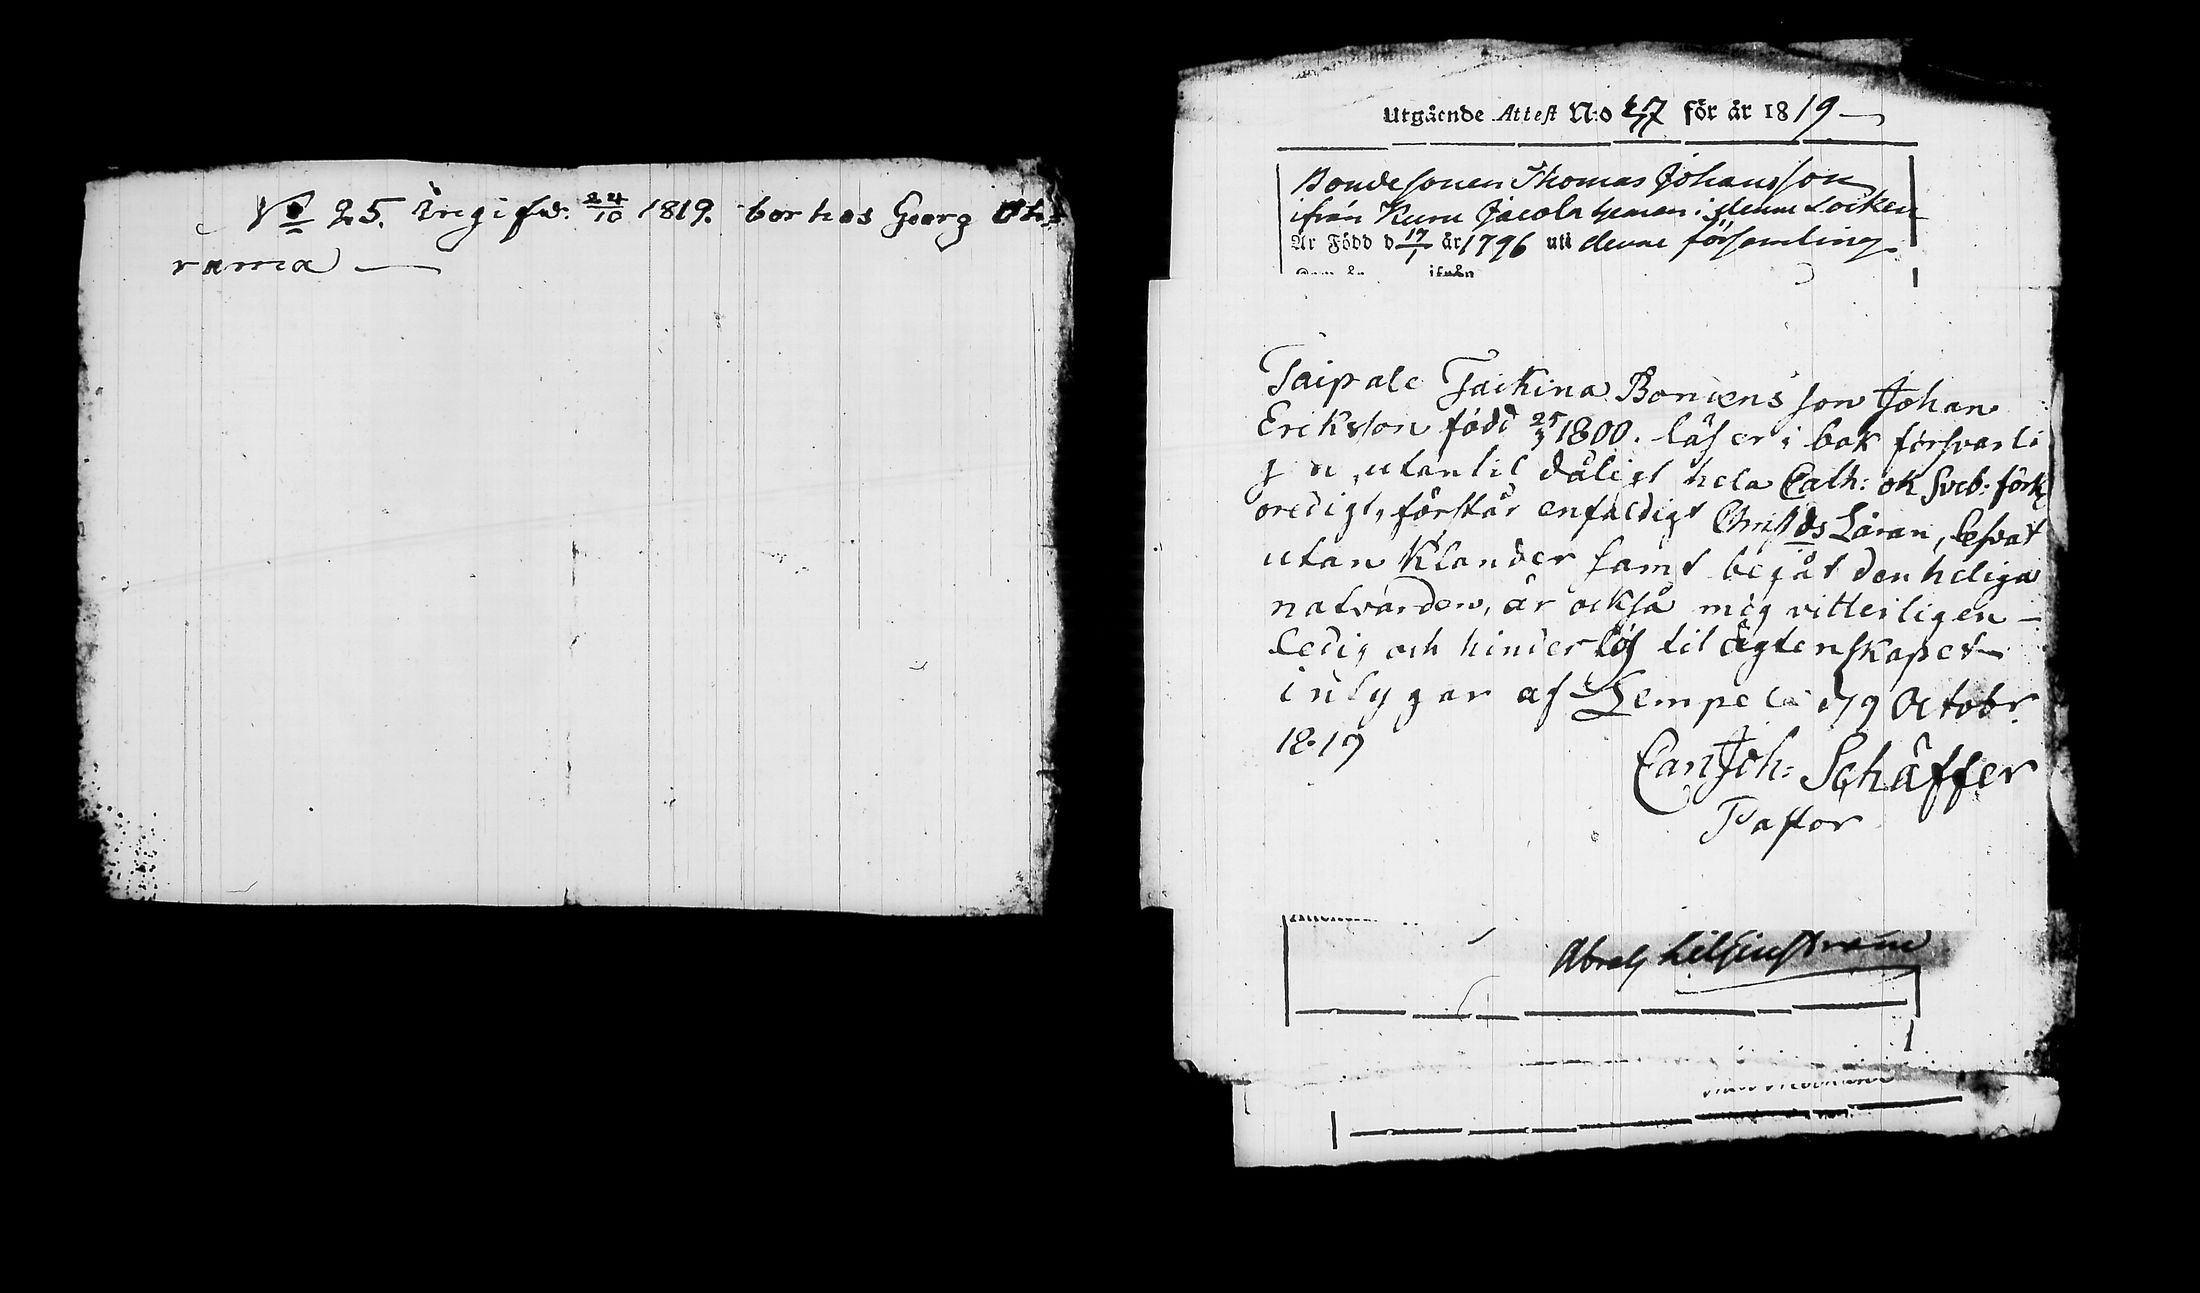 No 25. Ingifv. 24/10 1819. bor hos Georg
rama
Utgående Attest N:o 47 för år 1819
Bondesonen Thomas Johansson
ifrån Kuru Jacola heman i denne Socken
Är Född d 17/1 år 1796 uti denne församling
ifrån
Taipale Jaikina Bondens son Johan
Eriksson född 25/3 1800. läser i bok försvarli
gen utantil dåligt hela Cath: ok Sveb: förk
oredigt, förstår enfaldigt Christds Läran, lefvat
utan Klander samt begåt den heliga
natvarden, är också mig vitterligen
ledig och hinderlös til ägtenskapet
intygar af Lempelä d 19 Octobr
1819
Carl Joh: Schäffer
Pastor
Abrah Lilljestrame